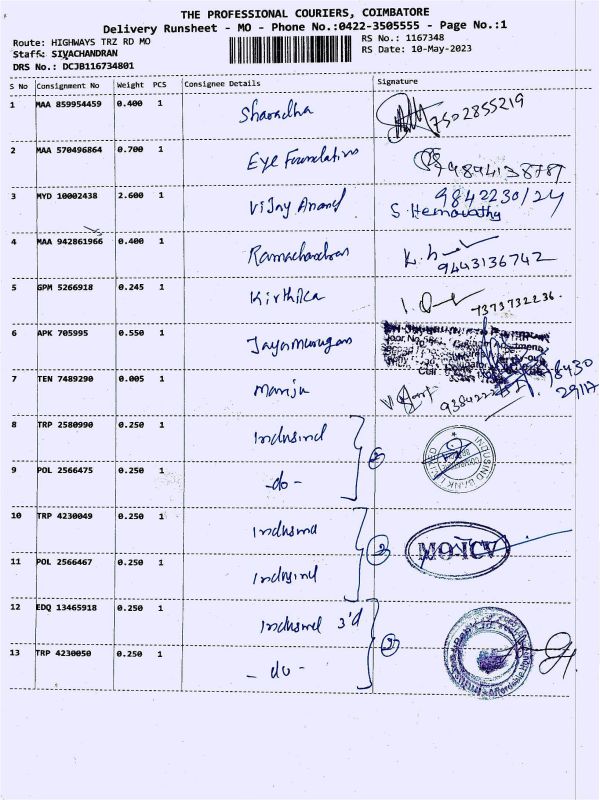 THE PROFESSIONAL COURIERS, COIMBATORE
Delivery Runsheet - MO - Phone No.:0422-3505555 - Page No.:1
Route: HIGHWAYS TRZ RD MO
RS No.: 1167348
Staff: SIVACHANDRAN
RS Date: 10-May-2023
DRS No.: DCJB116734801
S No Consignment No Weight PCS Consignee Details Signature
1 MAA 859954459 0.400 1 Sharadha 7502855219
2 MAA 570496864 0.700 1 Eye Foundation 7989413878
3 MYD 10002438 2.600 1 Vijay Anand 9842230124
S. Hemavathy
4 MAA 942861966 0.400 1 Ramachandran
9443136742
5 GPM 5266918 0.245 1 Kirthika 7373732236.
6 APK 705995 0.550 1 Jayamurugan
7 TEN 7489290 0.005 1 Manju
8 TRP 2580990 0.250 1 Indusind 2
INDUSIND BANK
9 POL 2566475 0.250 1 -do-
10 TRP 4230049 0.250 1 Indusind 2
11 POL 2566467 0.250 1 Indusind
12 EDQ 13465918 0.250 1 Indusind 3'd 2
13 TRP 4230050 0.250 1 -do-